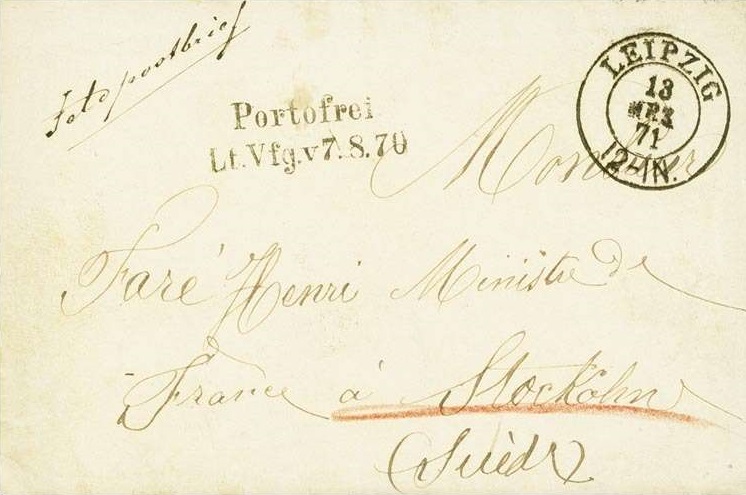 Feldpostbrief
Portofrei
Lt.Vfg.v 7.8.70
LEIPZIG
13
MRZ
71
12-1N.
Monsieur
Faré Henri Ministre de
France à Stockholm
(Suède)